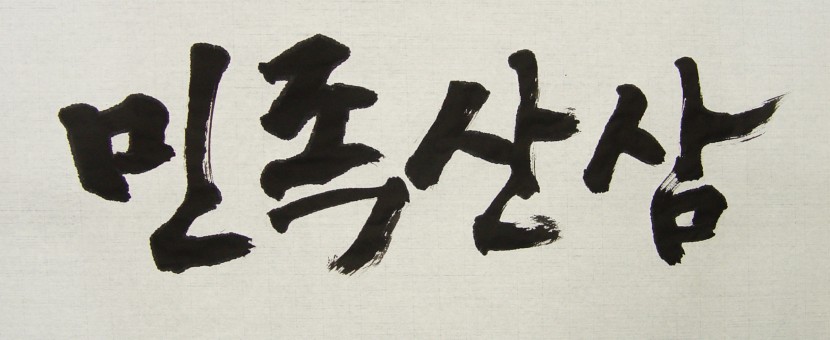 민족산삼